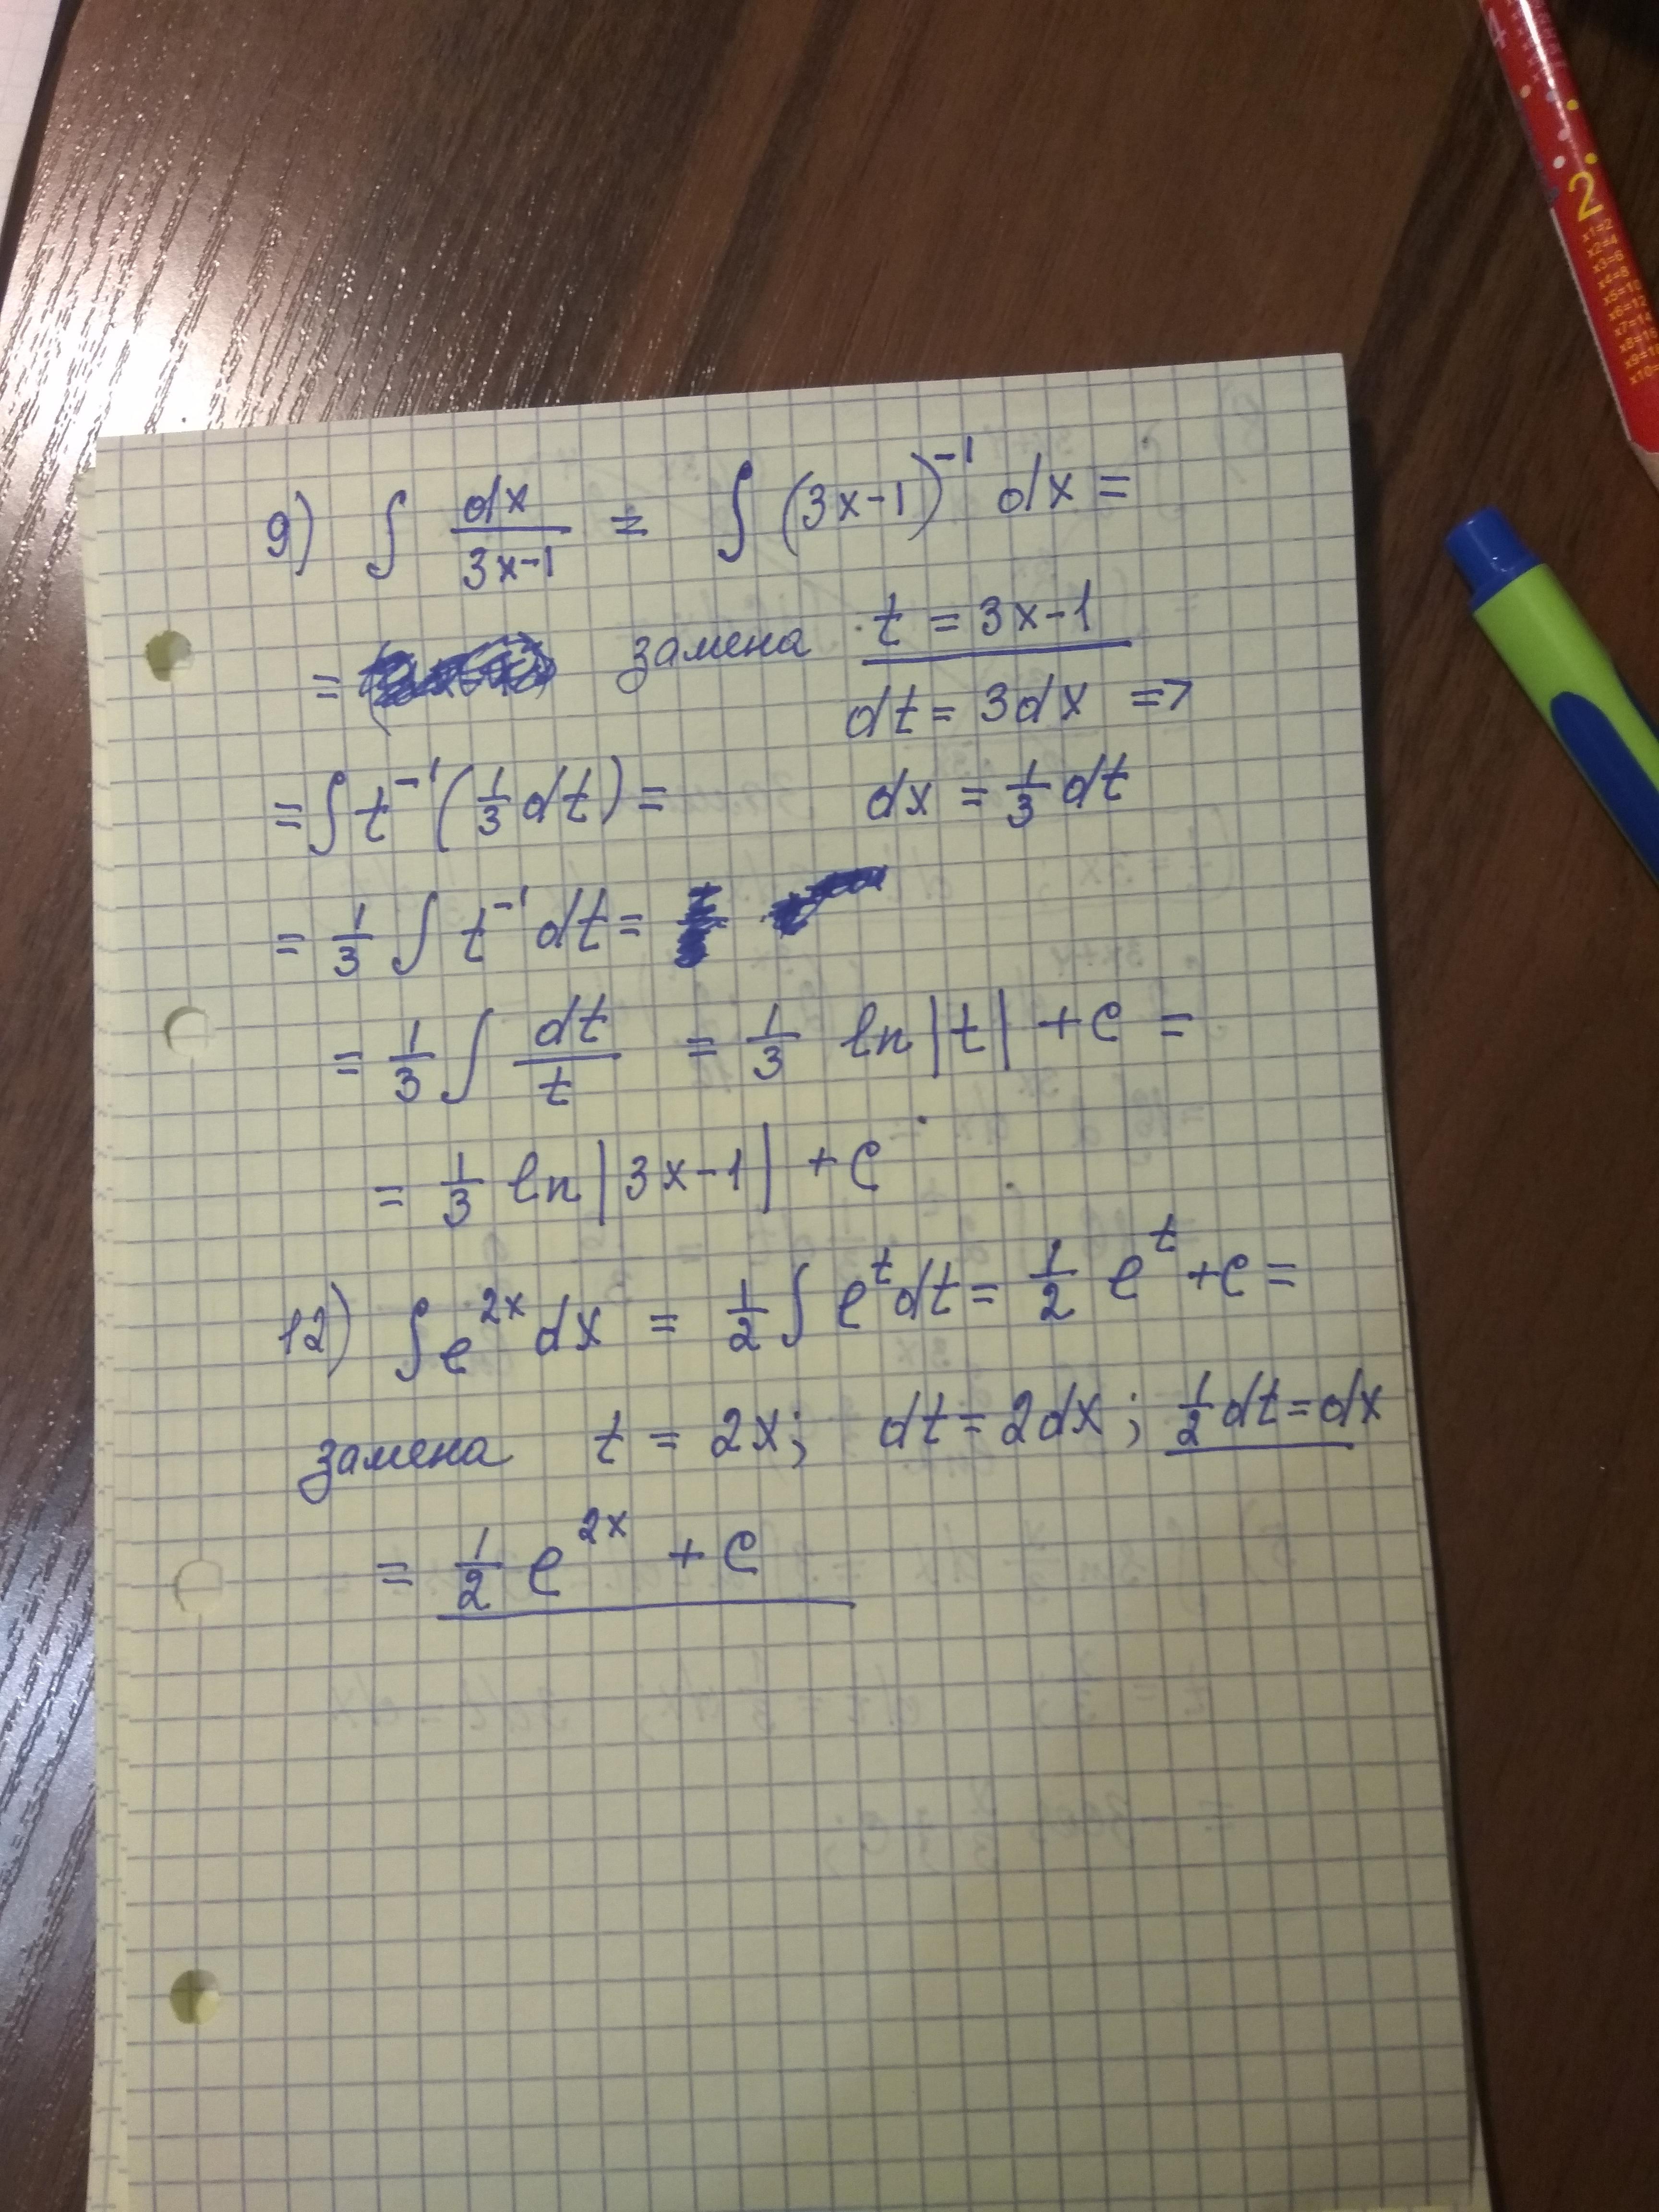 9) ∫ dx/(3x-1) = ∫ (3x-1)^-1 dx =
= замена t = 3x-1
dt = 3dx =>
= ∫ t^-1 (1/3 dt) = dx = 1/3 dt
= 1/3 ∫ t^-1 dt =
= 1/3 ∫ dt/t = 1/3 ln|t| + C =
= 1/3 ln|3x-1| + C
12) ∫ e^2x dx = 1/2 ∫ e^t dt = 1/2 e^t + C =
замена t = 2x; dt = 2dx; 1/2 dt = dx
= 1/2 e^2x + C
4
2
x1=2
x2=4
x3=6
x4=8
x5=10
x6=12
x7=14
x8=16
x9=18
x10=